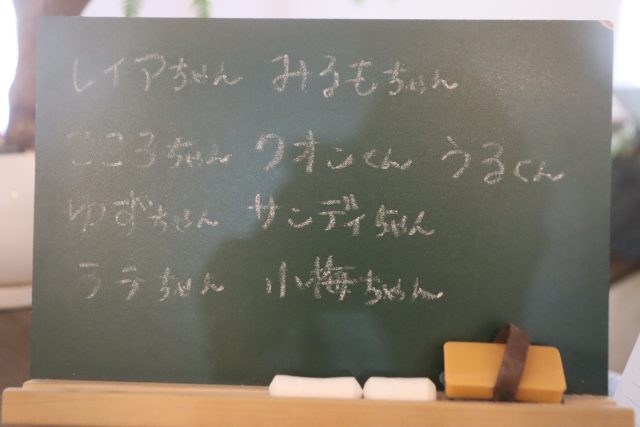 レイアちゃん みるもちゃん
こころちゃん クオンくん うるくん
ゆずちゃん サンディちゃん
ラテちゃん 小梅ちゃん